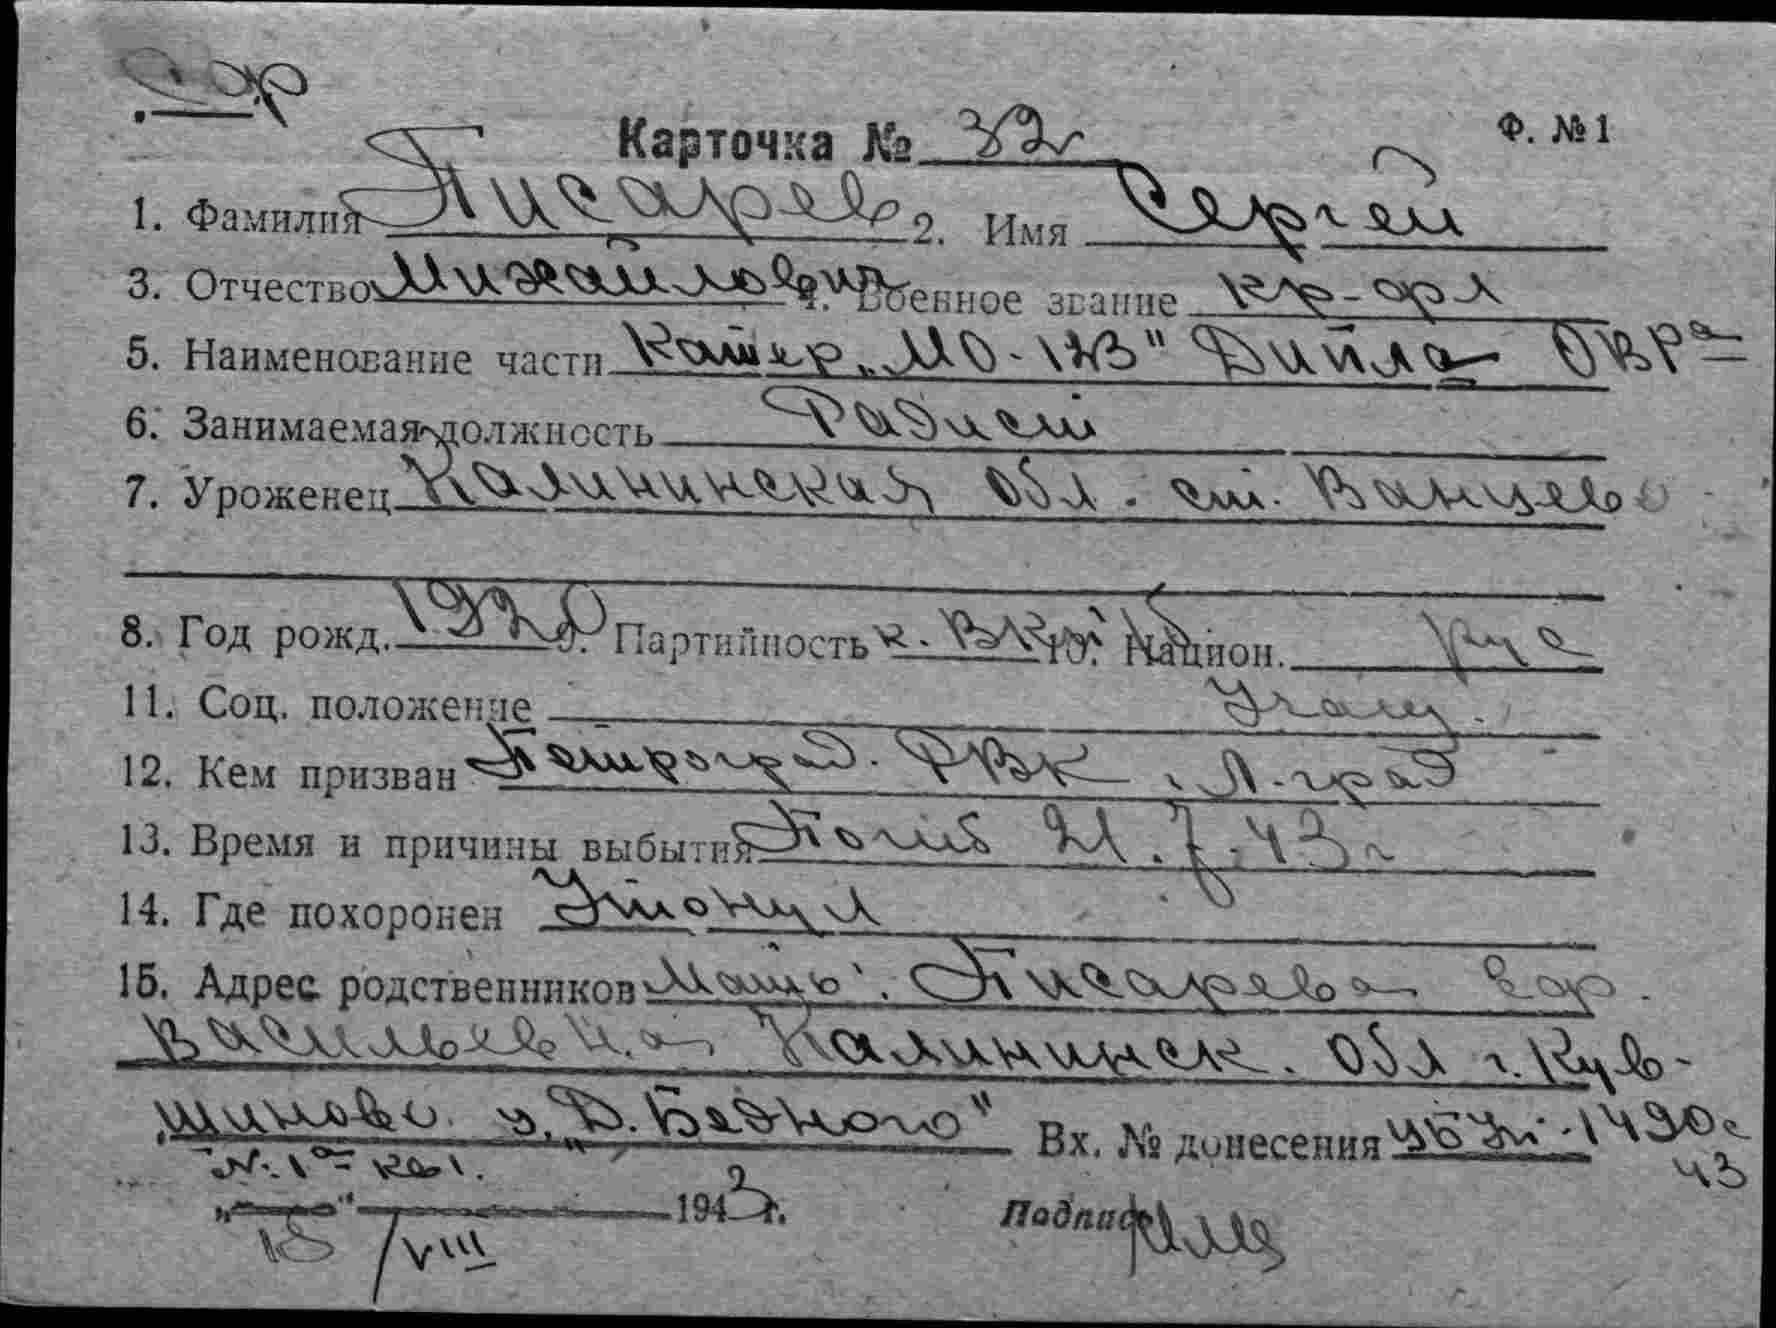 Карточка № 32 Ф. № 1
1. Фамилия Писарев 2. Имя Сергей
3. Отчество Михайлович 4. Военное звание кр-фл
5. Наименование части Катер „МО-123" ДиПЛ ОВРа
6. Занимаемая должность Радист
7. Уроженец Калининская обл. ст. Ванцево
8. Год рожд. 1920 9. Партийность к. ВКПб 10. Национ. рус
11. Соц. положение Учащ.
12. Кем призван Петроград. РВК, Л-град
13. Время и причины выбытия Погиб 21.7.43 г
14. Где похоронен Утонул
15. Адрес родственников Мать: Писарева Евф.
Васильевна Калининск. обл г. Кув-
шиново у. „Д. Бедного" Вх. № донесения 1490с
43
„18" /VIII 1943 г. Подпись